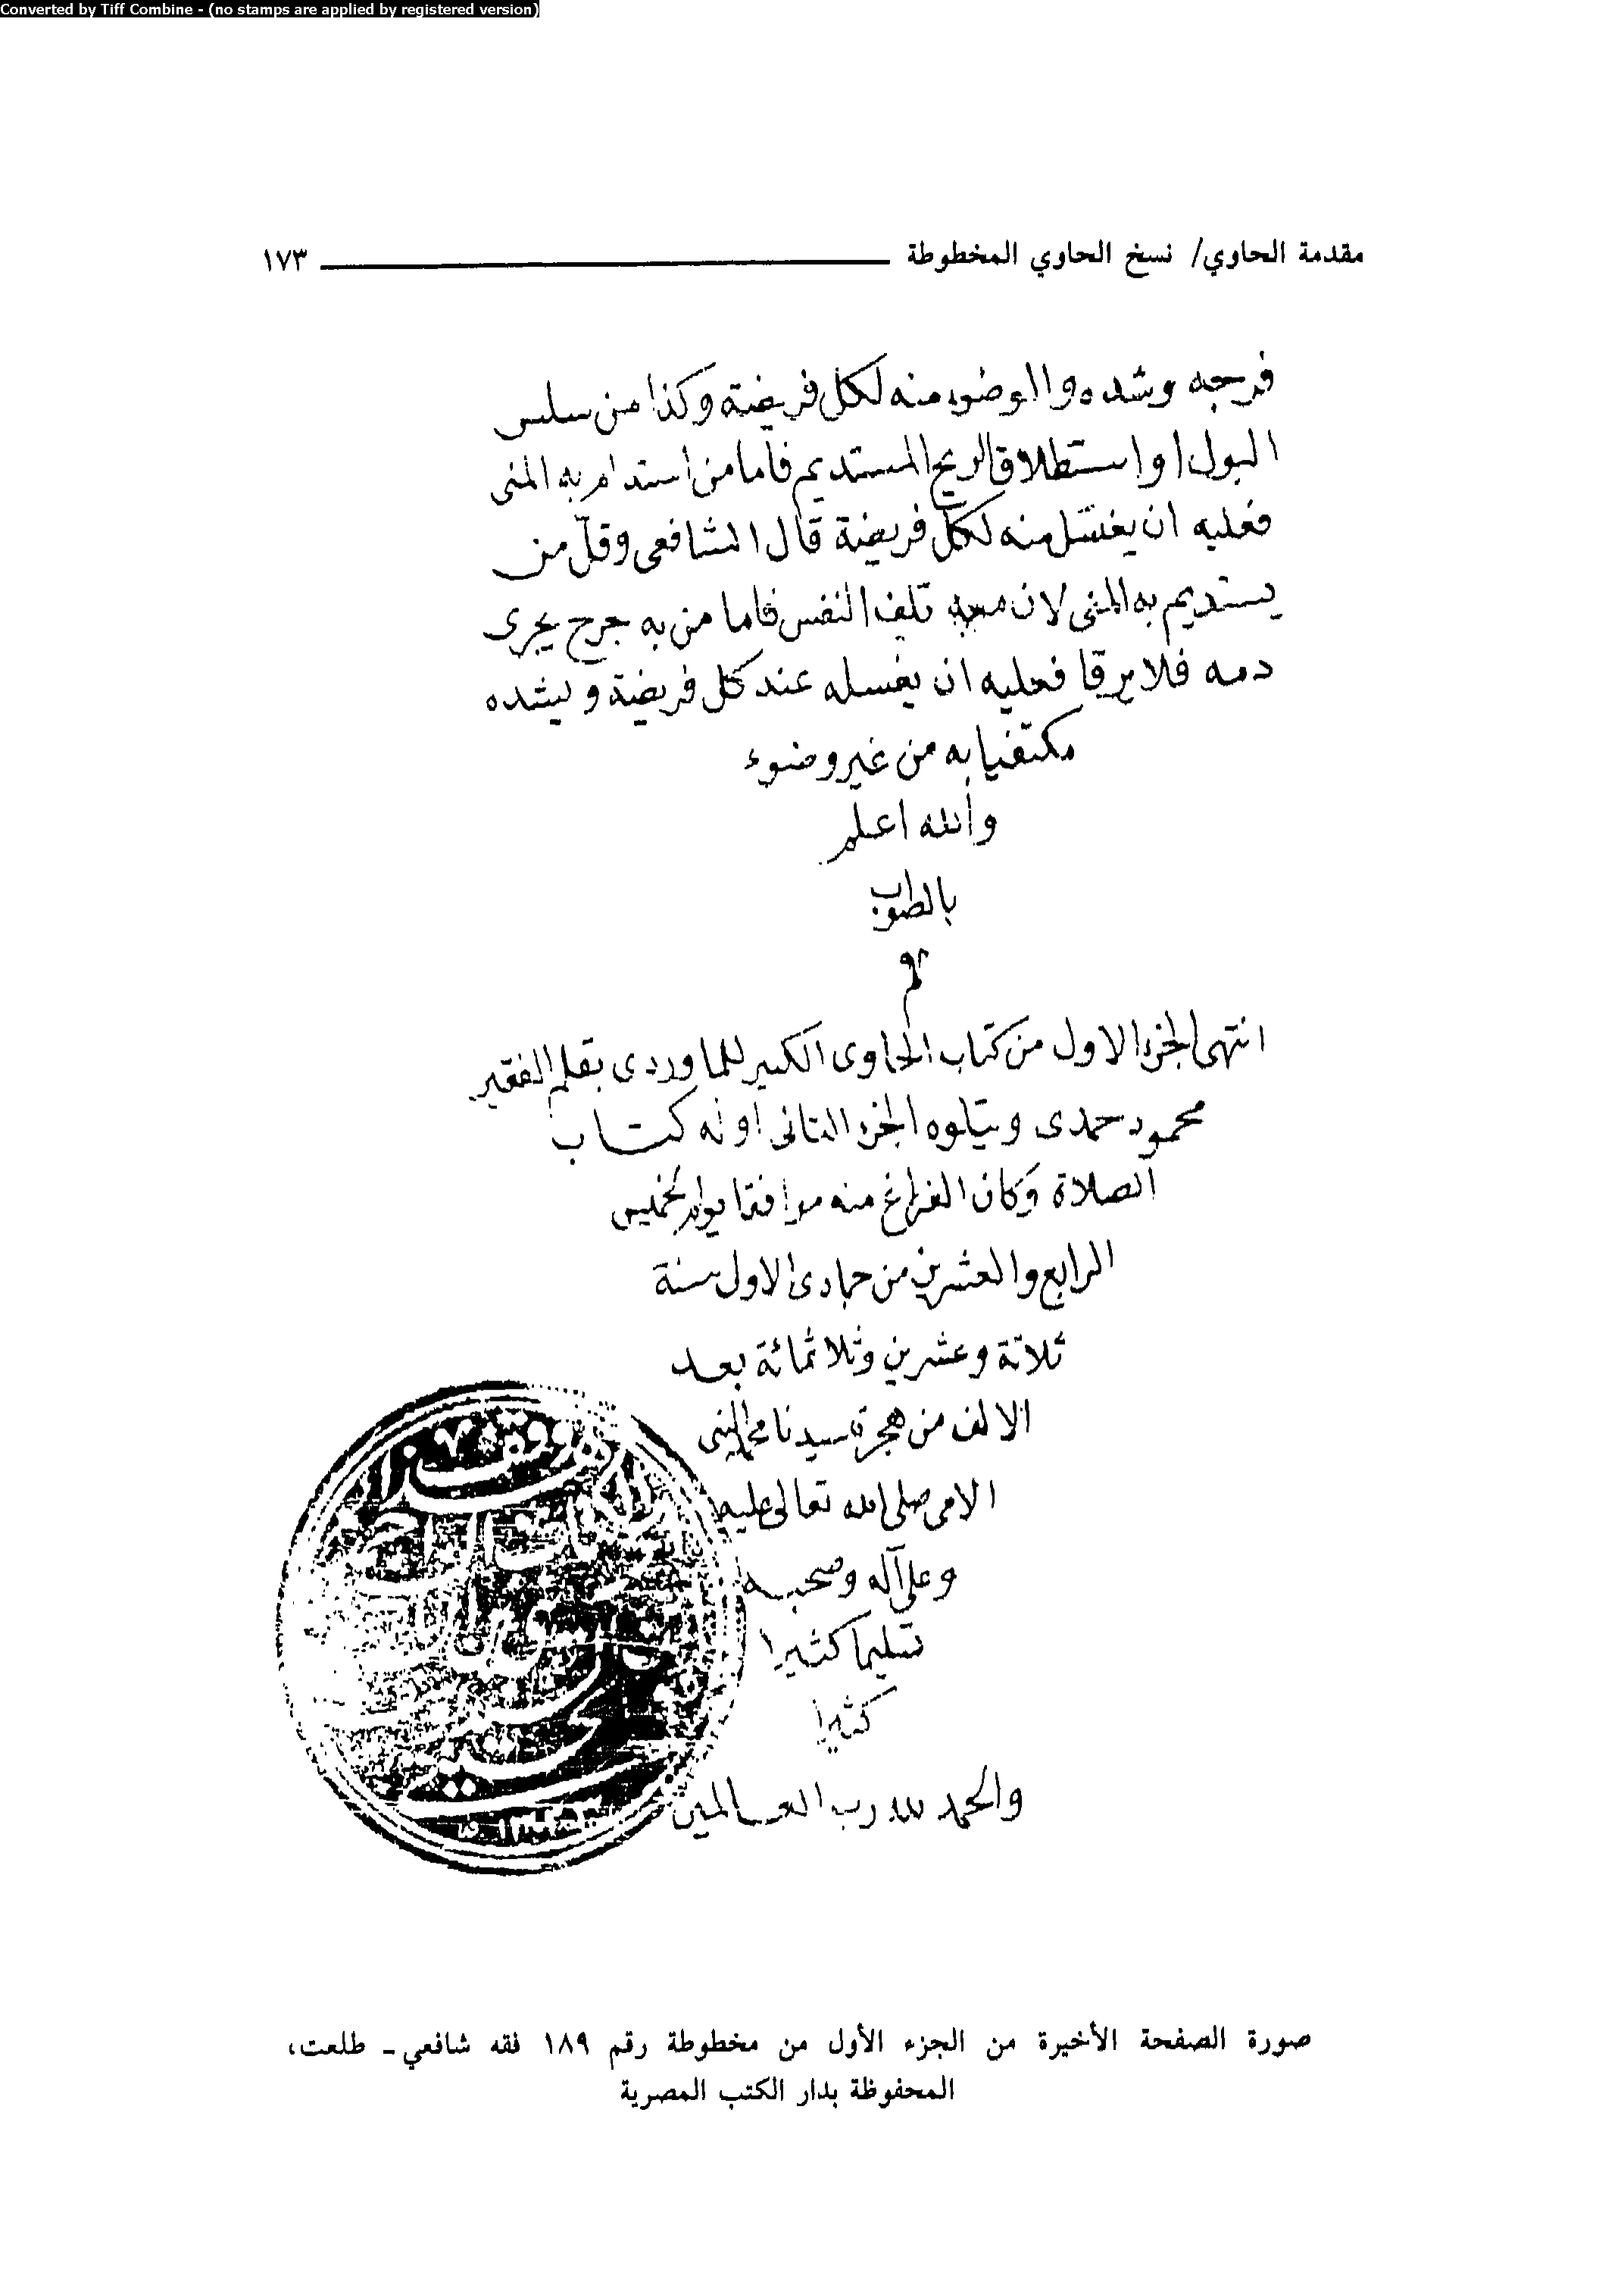 Converted by Tiff Combine - (no stamps are applied by registered version)
مقدمة الحاوي/ نسخ الحاوي المخطوطة ١٧٣
فرجه وشده والوضوء منه لكل فريضة وكذا من سلس
البول او استطلاق الريح المستديم فاما من استدام به المنى
فعليه ان يغتسل منه لكل فريضة قال الشافعى وقلّ من
يستديم به المنى لان معه تلف النفس فاما من به جرح يجرى
دمه فلا يرقا فعليه ان يغسله عند كل فريضة ويشده
مكتفيا به من غير وضوء
والله اعلم
بالصواب
م
انتهى الجزء الاول من كتاب الحاوى الكبير للماوردى بقلم الفقير
محمود حمدى ويتلوه الجزء الثانى اوله كتاب
الصلاة وكان الفراغ منه موافقا يوم الخميس
الرابع والعشرين من جمادى الاول سنة
ثلاثة وعشرين وثلاثمائة بعد
الالف من هجرة سيدنا محمد النبى
الامى صلى الله تعالى عليه
وعلى آله وصحبه
تسليما كثيرا
كثيرا
والحمد لله رب العالمين
صورة الصفحة الأخيرة من الجزء الأول من مخطوطة رقم ١٨٩ فقه شافعي - طلعت،
المحفوظة بدار الكتب المصرية